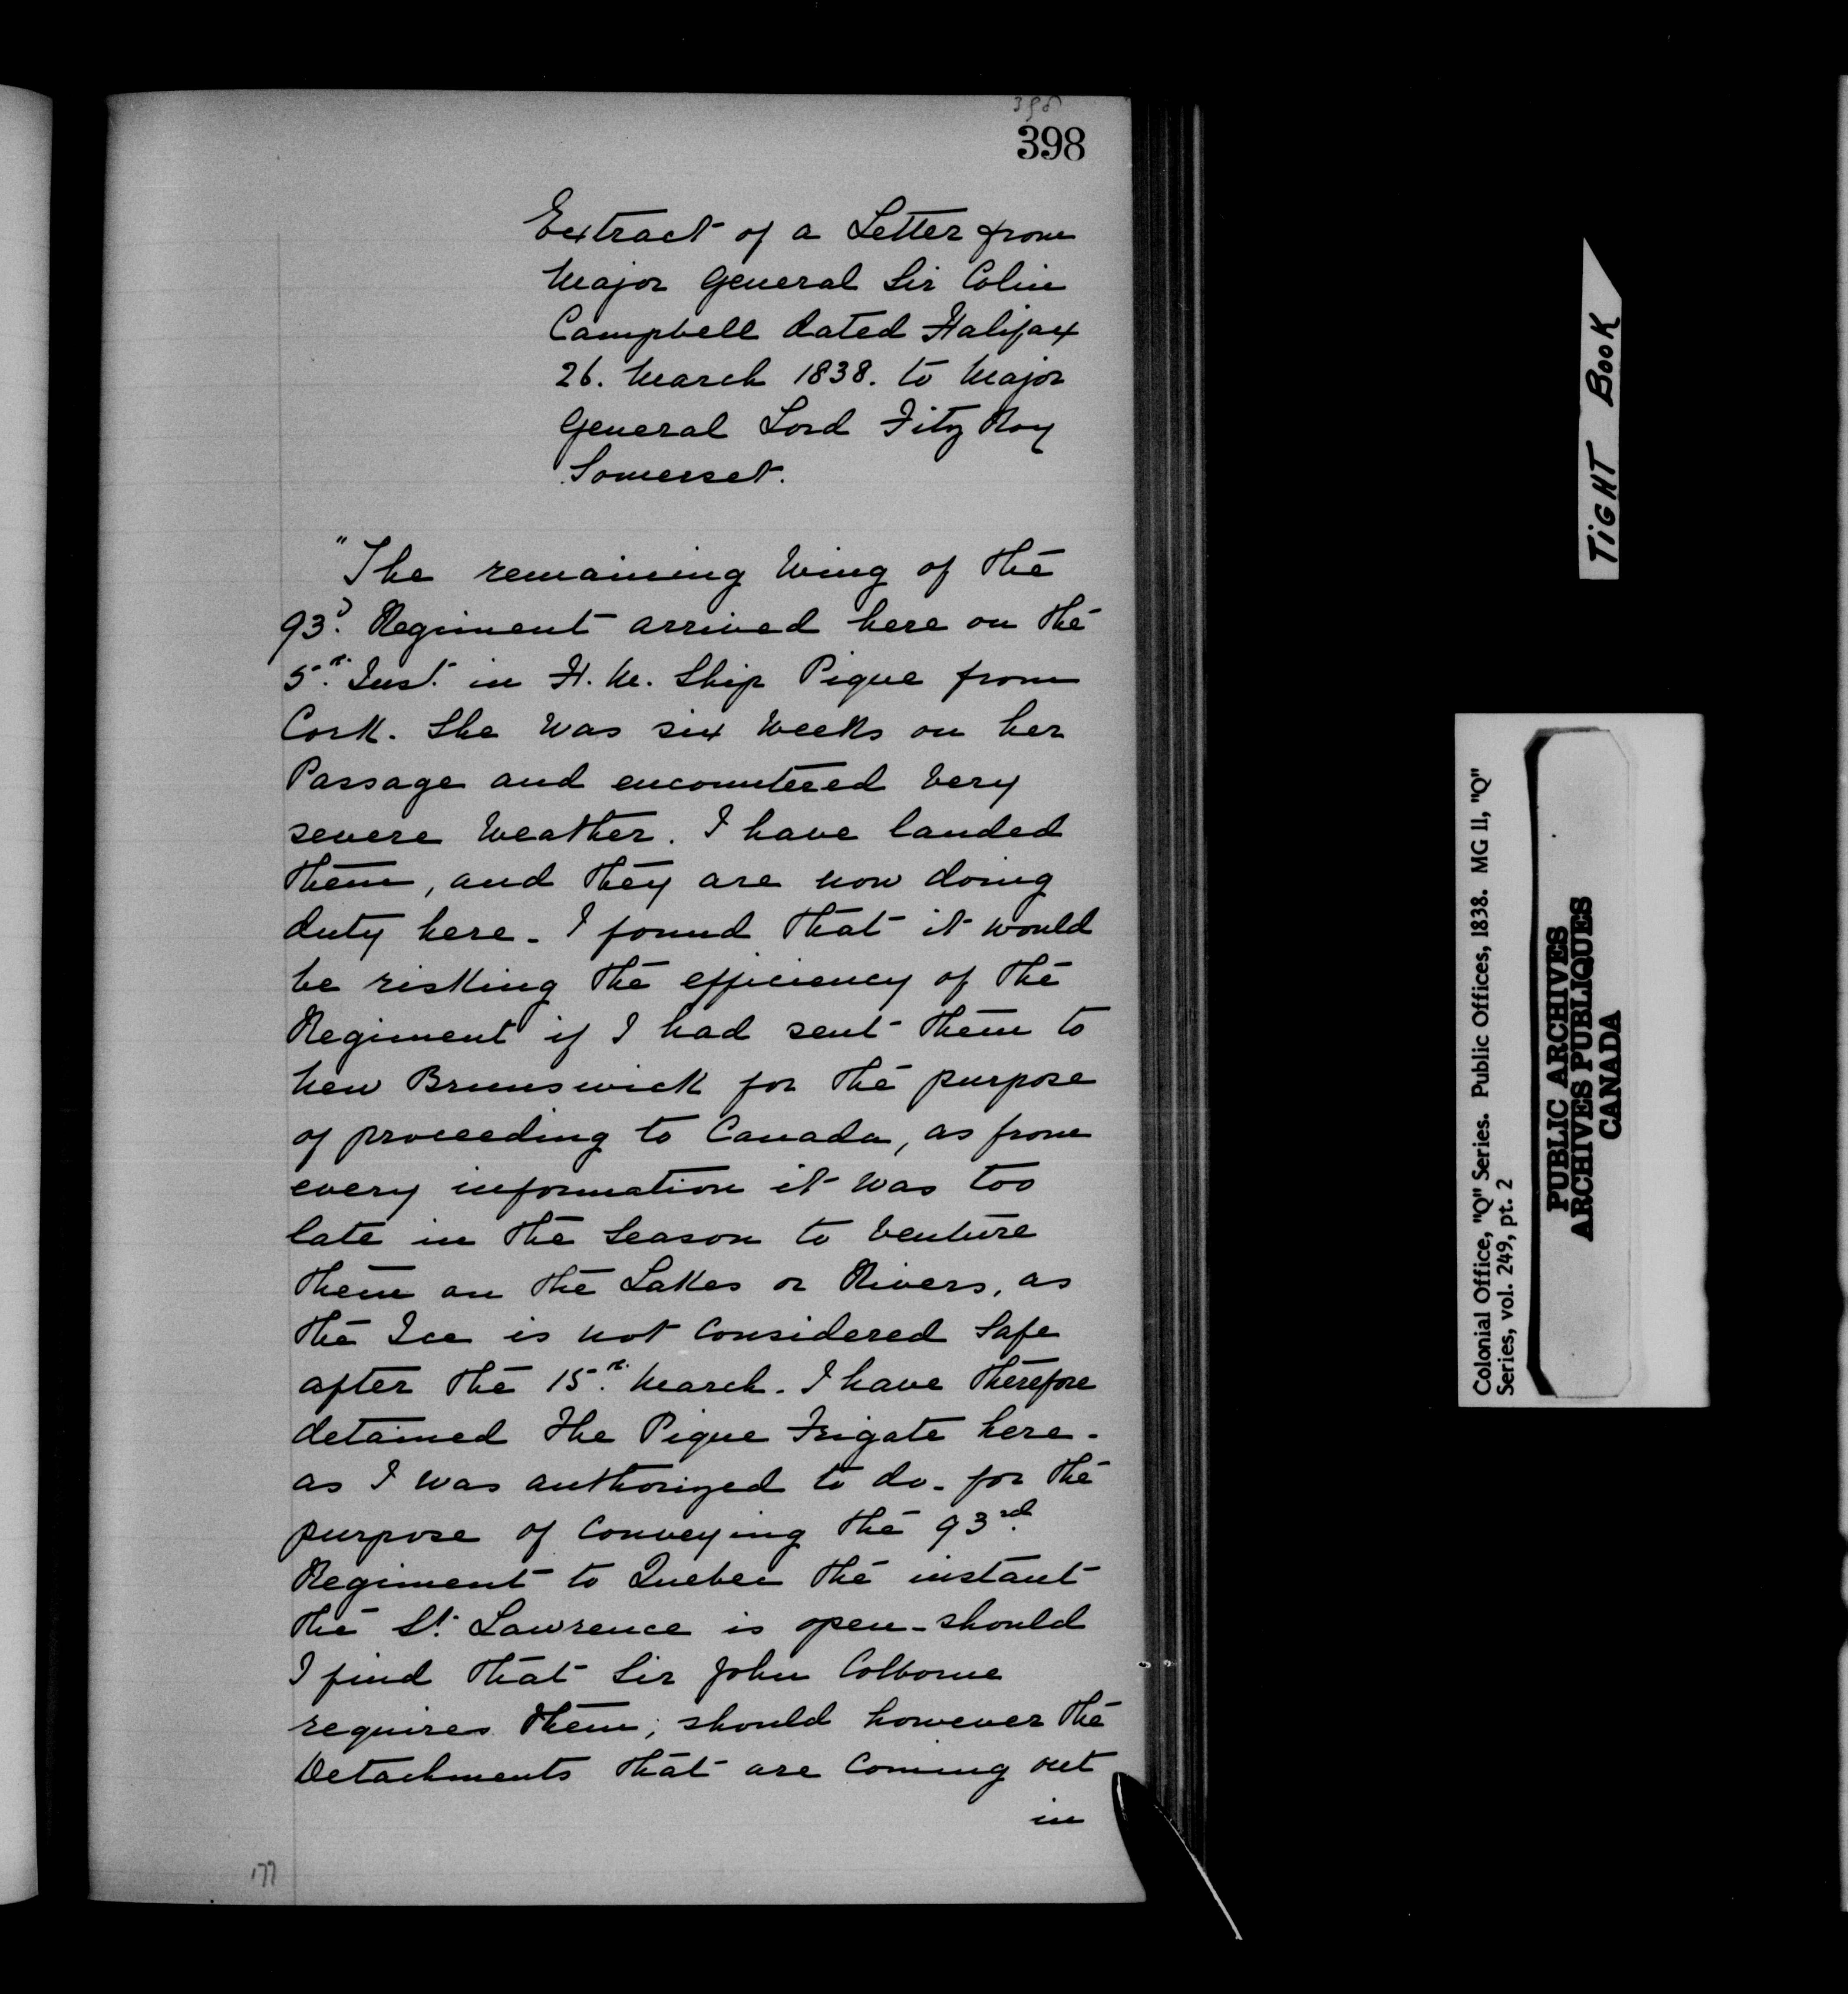 398
398
Extract of a Letter from
Major General Sir Colin
Campbell dated Halifax
26. March 1838. to Major
General Lord Fitz Roy
Somerset.
"The remaining Wing of the
93d. Regiment arrived here on the
5th. Inst. in H. M. Ship Pique from
Cork. She was six Weeks on her
Passage and encountered very
severe Weather. I have landed
them, and they are now doing
duty here - I found that it would
be risking the efficiency of the
Regiment if I had sent them to
New Brunswick for the purpose
of proceeding to Canada, as from
every information it was too
late in the Season to venture
them on the Lakes or Rivers, as
the Ice is not considered Safe
after the 15th. March. I have therefore
detained the Pique Frigate here -
as I was authorized to do - for the
purpose of Conveying the 93rd.
Regiment to Quebec the instant
the St. Lawrence is open - should
I find that Sir John Colborne
requires them; should however the
Detachments that are Coming out
in
177
TIGHT BOOK
Colonial Office, "Q" Series. Public Offices, 1838. MG 11, "Q"
Series, vol. 249, pt. 2
PUBLIC ARCHIVES
ARCHIVES PUBLIQUES
CANADA